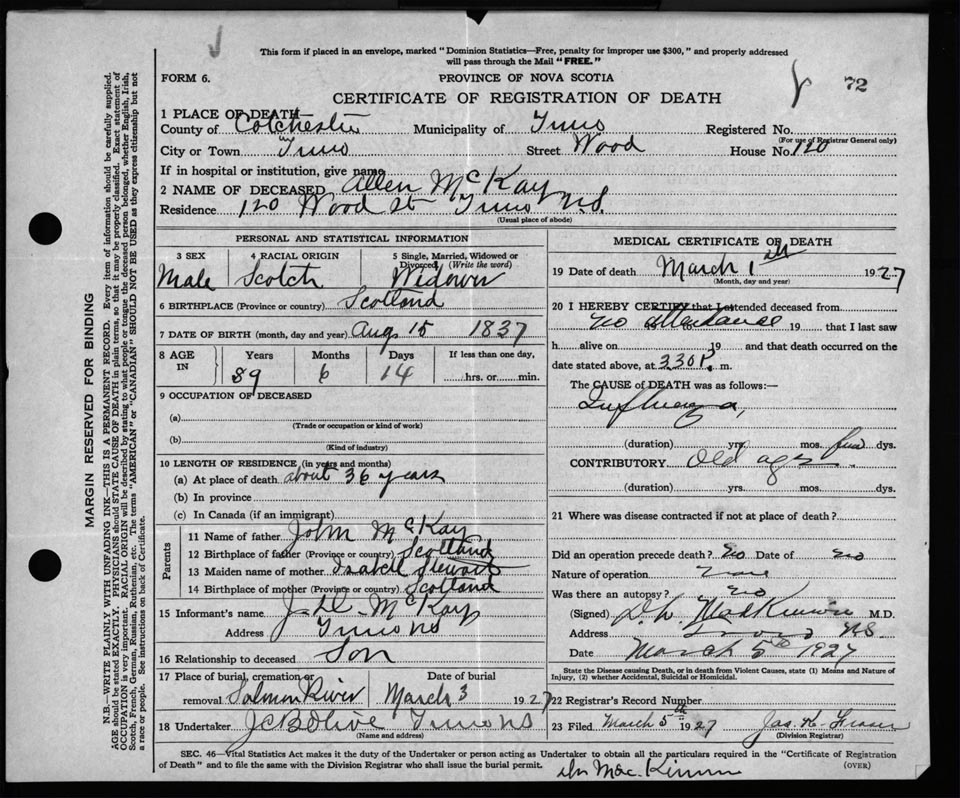 This form if placed in an envelope, marked "Dominion Statistics—Free, penalty for improper use $300," and properly addressed
will pass through the Mail "FREE."
FORM 6.
PROVINCE OF NOVA SCOTIA
72
CERTIFICATE OF REGISTRATION OF DEATH
1 PLACE OF DEATH
County of Colchester Municipality of Truro Registered No.
(For use of Registrar General only)
City or Town Truro Street Wood House No. 120
If in hospital or institution, give name
2 NAME OF DECEASED Allen McKay
Residence 120 Wood St Truro N.S.
(Usual place of abode)
PERSONAL AND STATISTICAL INFORMATION
3 SEX Male
4 RACIAL ORIGIN Scotch
5 Single, Married, Widowed or Divorced (Write the word) Widower
6 BIRTHPLACE (Province or country) Scotland
7 DATE OF BIRTH (month, day and year) Aug 15 1837
8 AGE IN Years Months Days If less than one day,
89 6 14 hrs. or min.
9 OCCUPATION OF DECEASED
(a)
(Trade or occupation or kind of work)
(b)
(Kind of industry)
10 LENGTH OF RESIDENCE (in years and months)
(a) At place of death about 36 years
(b) In province
(c) In Canada (if an immigrant)
Parents
11 Name of father John McKay
12 Birthplace of father (Province or country) Scotland
13 Maiden name of mother Isabell Stewart
14 Birthplace of mother (Province or country) Scotland
15 Informant's name McKay
Address Truro NS
16 Relationship to deceased Son
17 Place of burial, cremation or removal Salmon River
Date of burial March 3 1927
18 Undertaker J C B Olive Truro NS
(Name and address)
MEDICAL CERTIFICATE OF DEATH
19 Date of death March 1 1927
(Month, day and year)
20 I HEREBY CERTIFY that I attended deceased from
no attendance 19 that I last saw
h alive on 19 and that death occurred on
date stated above, at 3.30 P. m.
The CAUSE of DEATH was as follows:—
Influenza
(duration) yrs. mos. few dys.
CONTRIBUTORY Old age
(duration) yrs. mos. dys.
21 Where was disease contracted if not at place of death?
Did an operation precede death? No Date of no
Nature of operation None
Was there an autopsy? No
(Signed) MacKinnon M.D.
Address Truro NS
Date March 5th 1927
State the Disease causing Death, or in death from Violent Causes, state (1) Means and Nature of
Injury, (2) whether Accidental, Suicidal or Homicidal.
22 Registrar's Record Number
23 Filed March 5th 1927 Jas. Fraser
(Division Registrar)
SEC. 46—Vital Statistics Act makes it the duty of the Undertaker or person acting as Undertaker to obtain all the particulars required in the "Certificate of Registration
of Death" and to file the same with the Division Registrar who shall issue the burial permit.
(OVER)
Dr MacKinnon
MARGIN RESERVED FOR BINDING
N.B.—WRITE PLAINLY WITH UNFADING INK—THIS IS A PERMANENT RECORD. Every item of information should be carefully supplied.
AGE should be stated EXACTLY. PHYSICIANS should STATE CAUSE OF DEATH in plain terms, so that it may be properly classified. Exact statement of
OCCUPATION is very important. RACIAL ORIGIN will be described by stating to what people or tongue the deceased person belonged, whether English, Irish,
Scotch, French, German, Russian, Ruthenian, etc. The terms "AMERICAN" or "CANADIAN" SHOULD NOT BE USED as they express citizenship but not
a race or people. See instructions on back of Certificate.